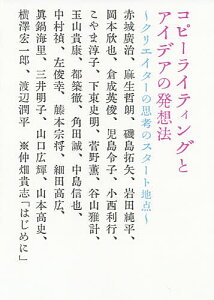 コピーライティングと
アイデアの発想法
〜クリエイターの思考のスタート地点〜
赤城廣治、麻生哲朗、磯島拓矢、岩田純平、
岡本欣也、倉成英俊、児島令子、小西利行、
こやま淳子、下東史明、菅野薫、谷山雅計、
玉山貴康、都築徹、角田誠、中島信也、
中村禎、左俊幸、藤本宗将、細田高広、
眞鍋海里、三井明子、山口広輝、山本高史、
横澤宏一郎　渡辺潤平　※仲畑貴志「はじめに」